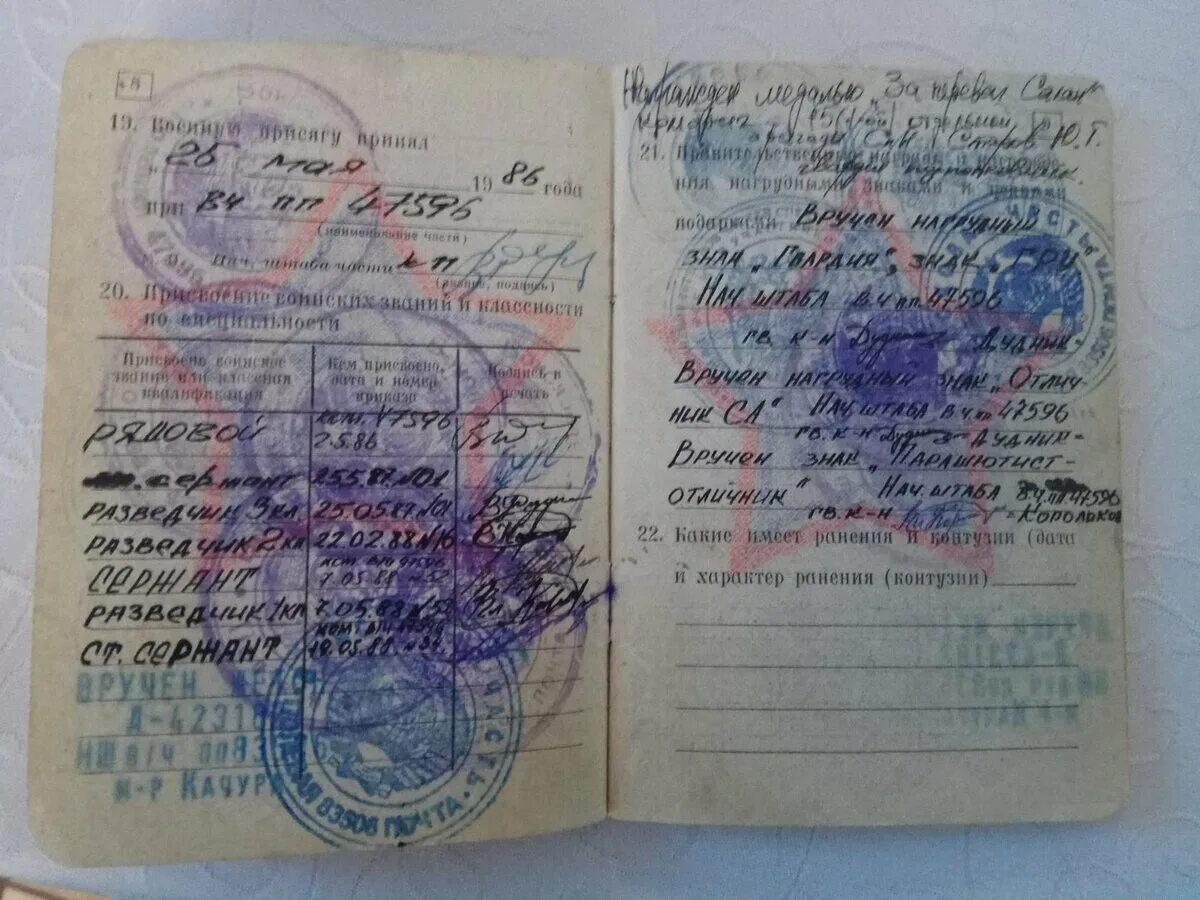 8
19. Военную присягу принял
„ 25 мая 1986 года
при ВЧ ПП 47596
(наименование части)
Нач. штаба части к-н
(звание, подпись)
20. Присвоение воинских званий и классности
по специальности
Присвоено воинское звание или классная квалификация
Кем присвоено, дата и номер приказа
Подпись и печать
РЯДОВОЙ ком. 47596 2.5.86
сержант 25.5.87.№01
РАЗВЕДЧИК 3кл. 25.05.87.№01
РАЗВЕДЧИК 2кл 22.02.88 №16
СЕРЖАНТ 7.05.88 №52
РАЗВЕДЧИК 1кл 7.05.88 №52
СТ. СЕРЖАНТ 19.05.88
ВРУЧЕН
НШ в/ч пп83506
м-р КАЧУР
ПОЛЕВАЯ ПОЧТА 83506 ЧАСТЬ
Награжден медалью „За перевал Саланг"
комбриг 15 отдельной
бригады СпН Старов Ю.Т.
гвардии подполковник.
21. Правительственные награды и награждения нагрудными знаками и ценными
подарками Вручен нагрудный
знак „Гвардия", знак „ГРУ
Нач. штаба в.ч пп 47596
гв. к-н Дудник-
Вручен нагрудный знак „Отлич-
ник СА" Нач. штаба в.ч пп 47596
гв. к-н Дудник-
Вручен знак „Парашютист-
отличник" Нач. штаба в.ч. пп 47596
гв. к-н Корольков
22. Какие имеет ранения и контузии (дата
и характер ранения (контузии)